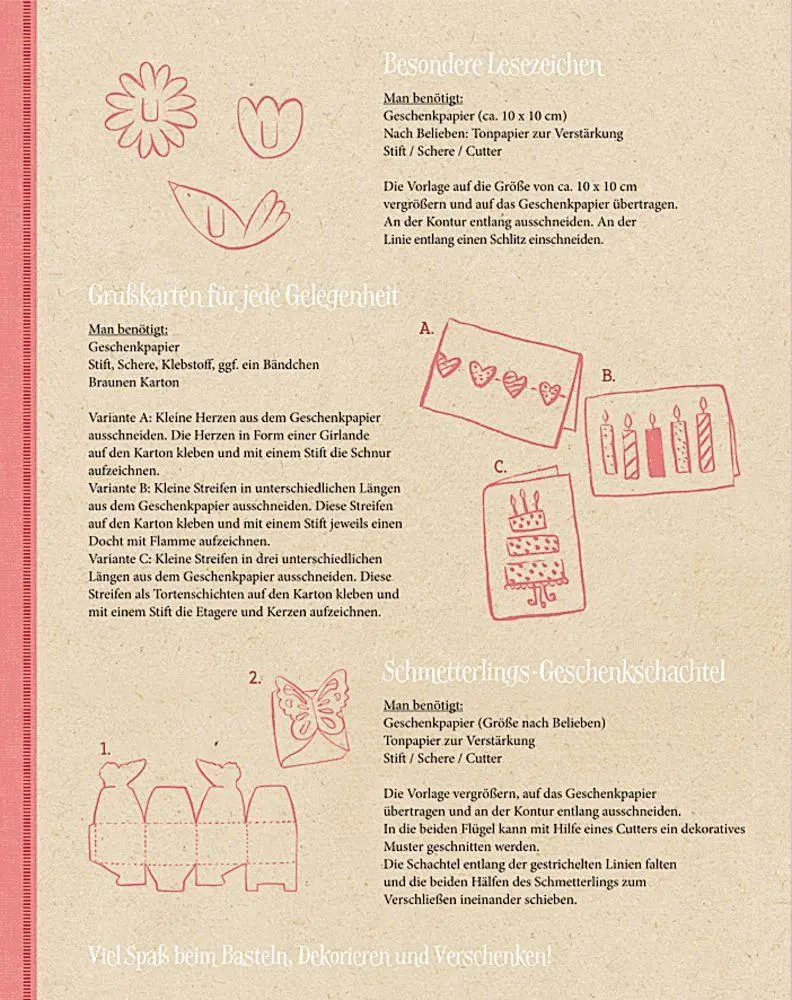 Besondere Lesezeichen
Man benötigt:
Geschenkpapier (ca. 10 x 10 cm)
Nach Belieben: Tonpapier zur Verstärkung
Stift / Schere / Cutter
Die Vorlage auf die Größe von ca. 10 x 10 cm
vergrößern und auf das Geschenkpapier übertragen.
An der Kontur entlang ausschneiden. An der
Linie entlang einen Schlitz einschneiden.
Grußkarten für jede Gelegenheit
Man benötigt:
Geschenkpapier
Stift, Schere, Klebstoff, ggf. ein Bändchen
Braunen Karton
Variante A: Kleine Herzen aus dem Geschenkpapier
ausschneiden. Die Herzen in Form einer Girlande
auf den Karton kleben und mit einem Stift die Schnur
aufzeichnen.
Variante B: Kleine Streifen in unterschiedlichen Längen
aus dem Geschenkpapier ausschneiden. Diese Streifen
auf den Karton kleben und mit einem Stift jeweils einen
Docht mit Flamme aufzeichnen.
Variante C: Kleine Streifen in drei unterschiedlichen
Längen aus dem Geschenkpapier ausschneiden. Diese
Streifen als Tortenschichten auf den Karton kleben und
mit einem Stift die Etagere und Kerzen aufzeichnen.
A.
B.
C.
Schmetterlings-Geschenkschachtel
Man benötigt:
Geschenkpapier (Größe nach Belieben)
Tonpapier zur Verstärkung
Stift / Schere / Cutter
Die Vorlage vergrößern, auf das Geschenkpapier
übertragen und an der Kontur entlang ausschneiden.
In die beiden Flügel kann mit Hilfe eines Cutters ein dekoratives
Muster geschnitten werden.
Die Schachtel entlang der gestrichelten Linien falten
und die beiden Hälfen des Schmetterlings zum
Verschließen ineinander schieben.
1.
2.
Viel Spaß beim Basteln, Dekorieren und Verschenken!